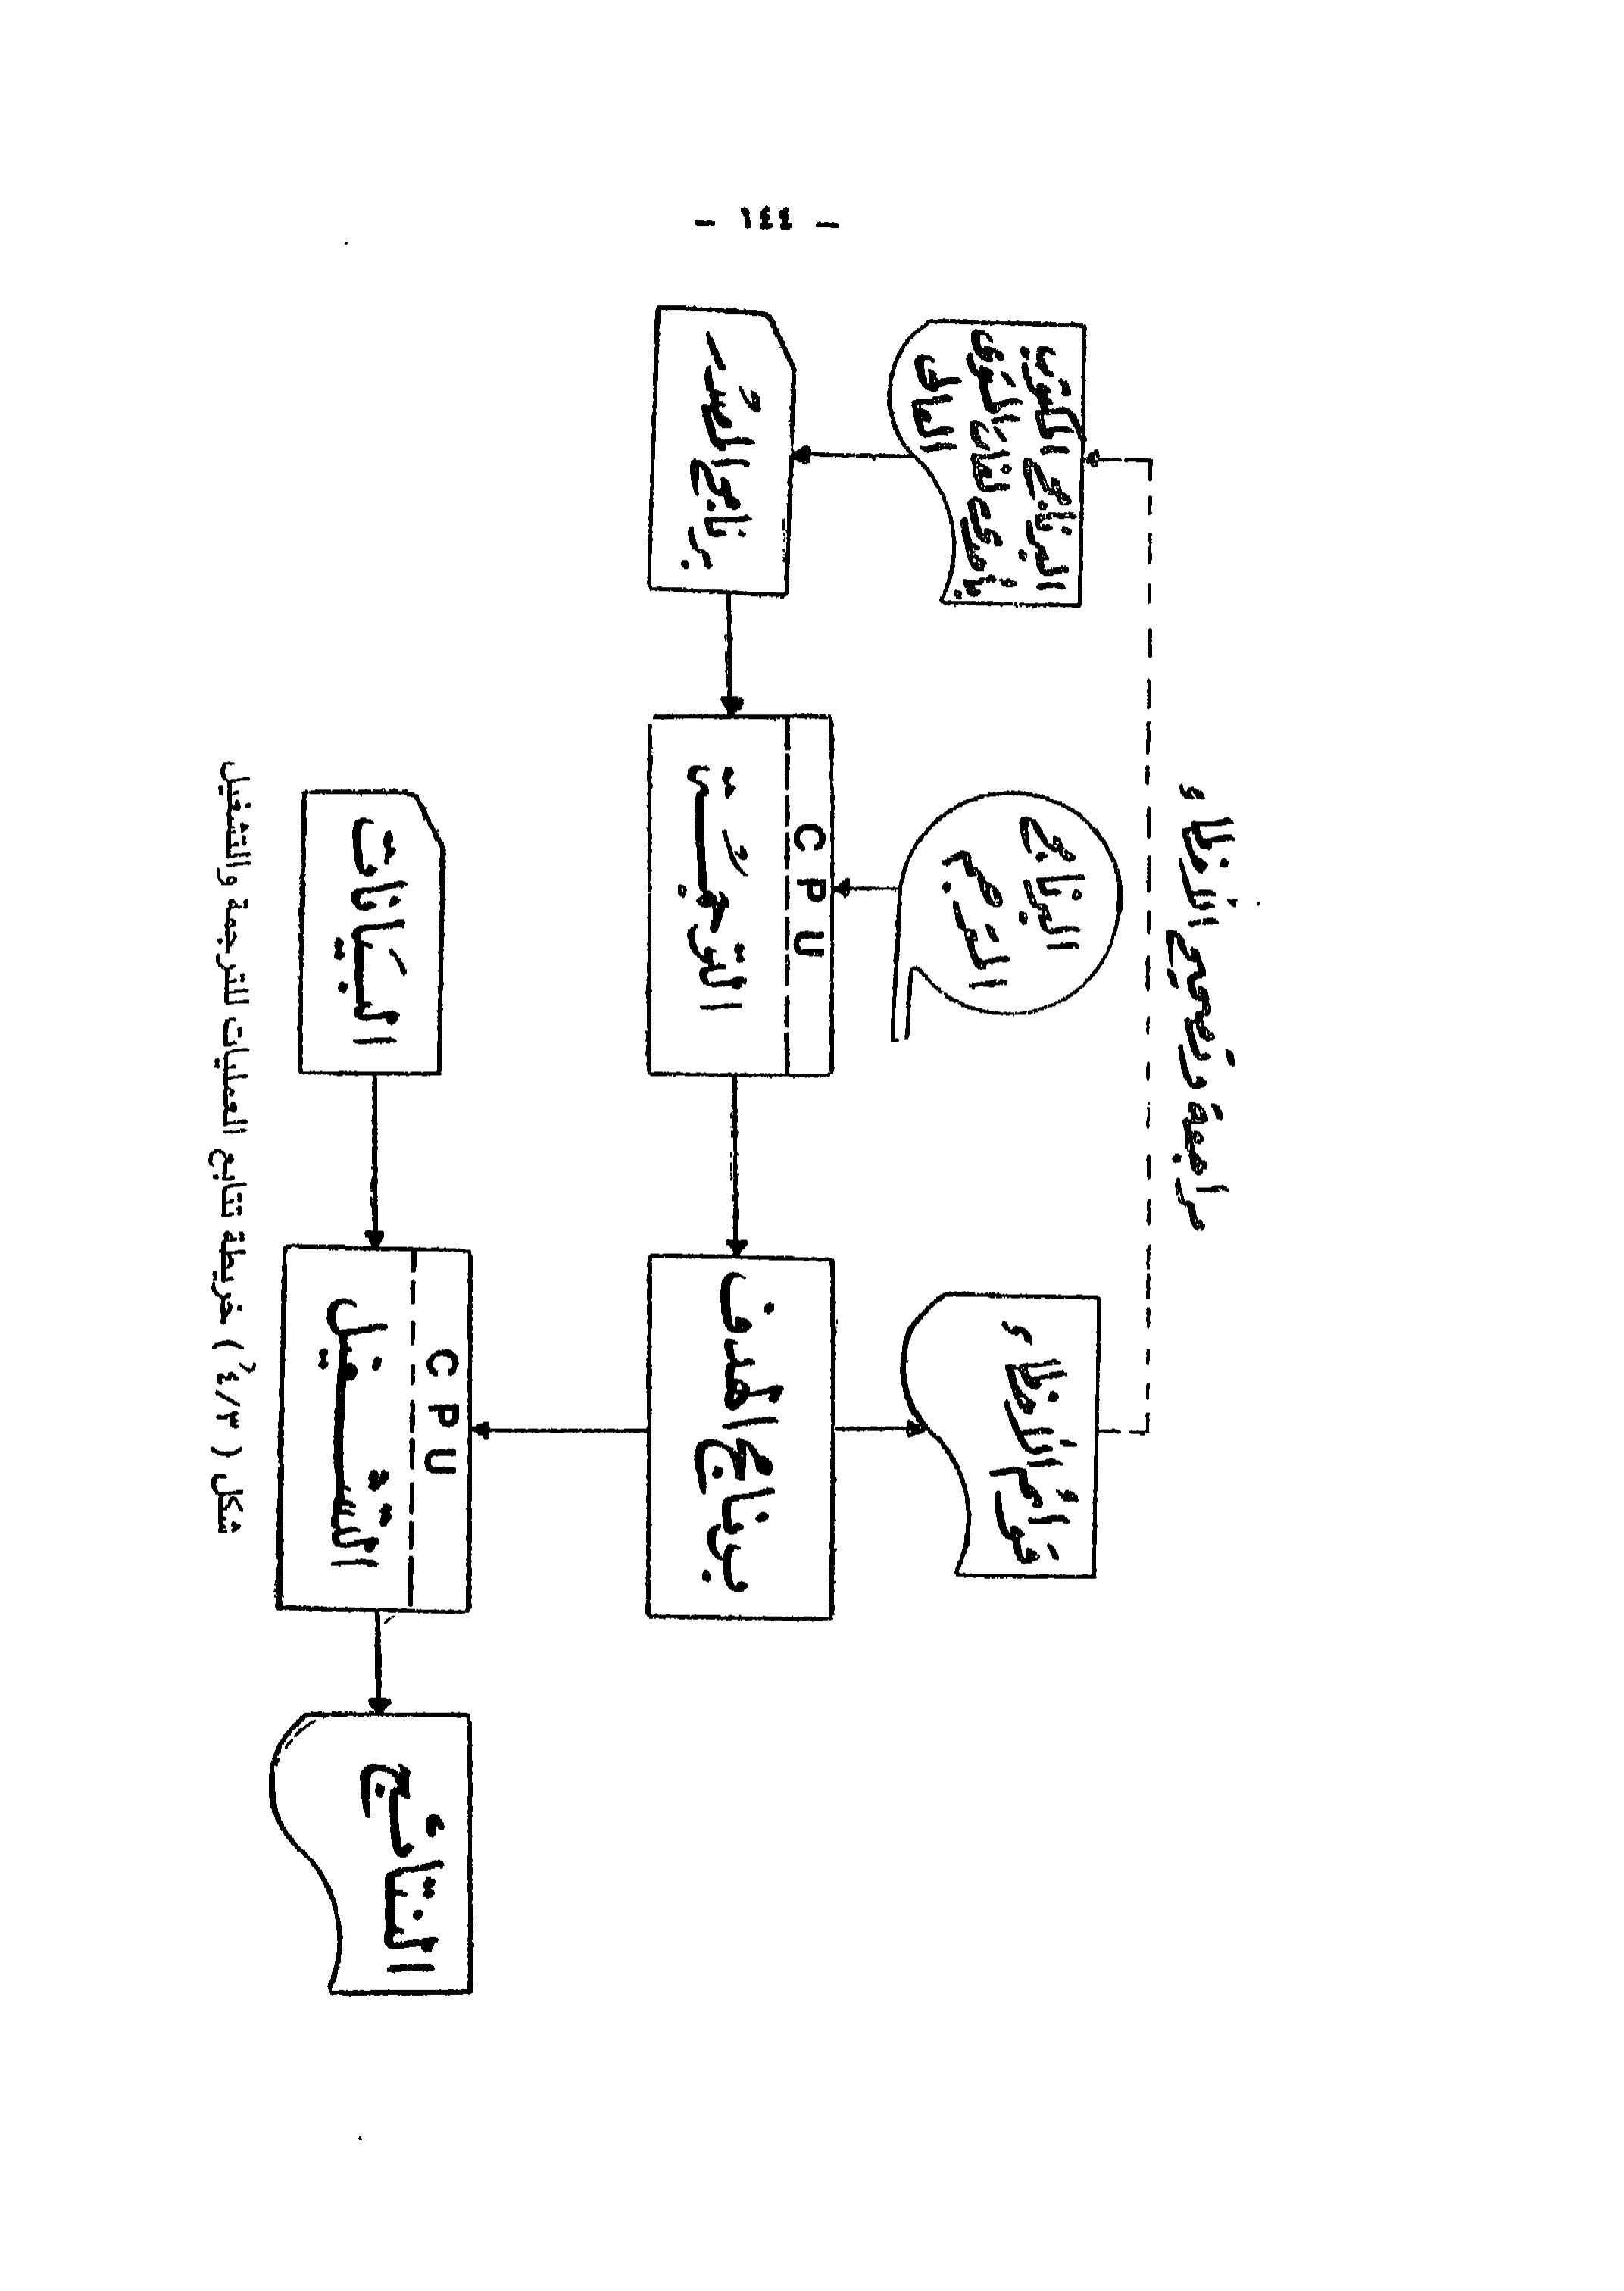 - ١٤٤ -
مراجعة وتصحيح الأخطاء
البرنامج المكتوب
بإحدى لغات المستوى
العالى
البرنامج
المترجم
قوائم الأخطاء
برنامج المصدر
C P U
الترجمــة
برنامج الهدف
البيانات
C P U
التشغيل
النتائج
شكل ( ٤/٣ ) خريطة تتابع العمليات للترجمة والتشغيل